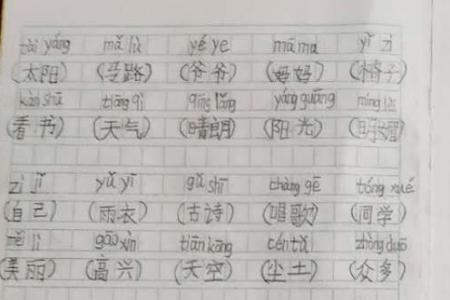 tài yáng mǎ lù yé ye mā ma yǐ zi
(太阳) (马路) (爷爷) (妈妈) (椅子)
kàn shū tiān qì qíng lǎng yáng guāng
(看书) (天气) (晴朗) (阳光)
zì jǐ yǔ yī gǔ shī chàng gē tóng xué
(自己) (雨衣) (古诗) (唱歌) (同学)
měi lì gāo xìn tiān kōng zhòng duō
(美丽) (高兴) (天空) (尘土) (众多)